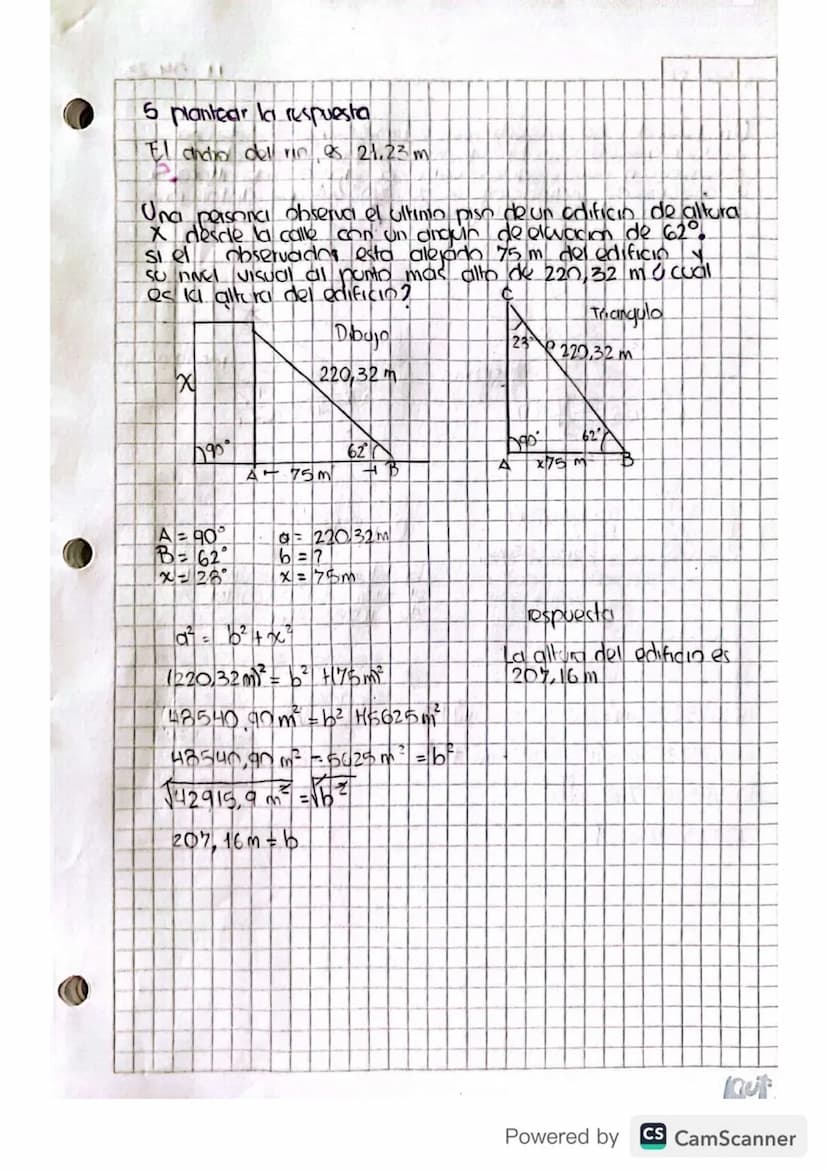 5 plantear la respuesta
El ancho del rio es 21.23 m
Una persona observa el ultimo piso de un edificio de altura
x desde la calle con un angulo de elevacion de 62°.
si el observador esta alejado 75 m del edificio y
su nivel visual al punto mas alto de 220,32 m ¿cual
es la altura del edificio?
Dibujo
220,32 m
x
90°
62°
A 75 m B
Triangulo
C
23°
220,32 m
90°
62°
A x75 m B
A = 90° a = 220,32 m
B = 62° b = ?
x = 28° x = 75m
a² = b² + x²
(220,32 m)² = b² + (75 m)²
48540,90 m² = b² + 5625 m²
48540,90 m² - 5625 m² = b²
√42915,9 m² = √b²
207,16 m = b
respuesta
La altura del edificio es
207,16 m
Powered by CS CamScanner